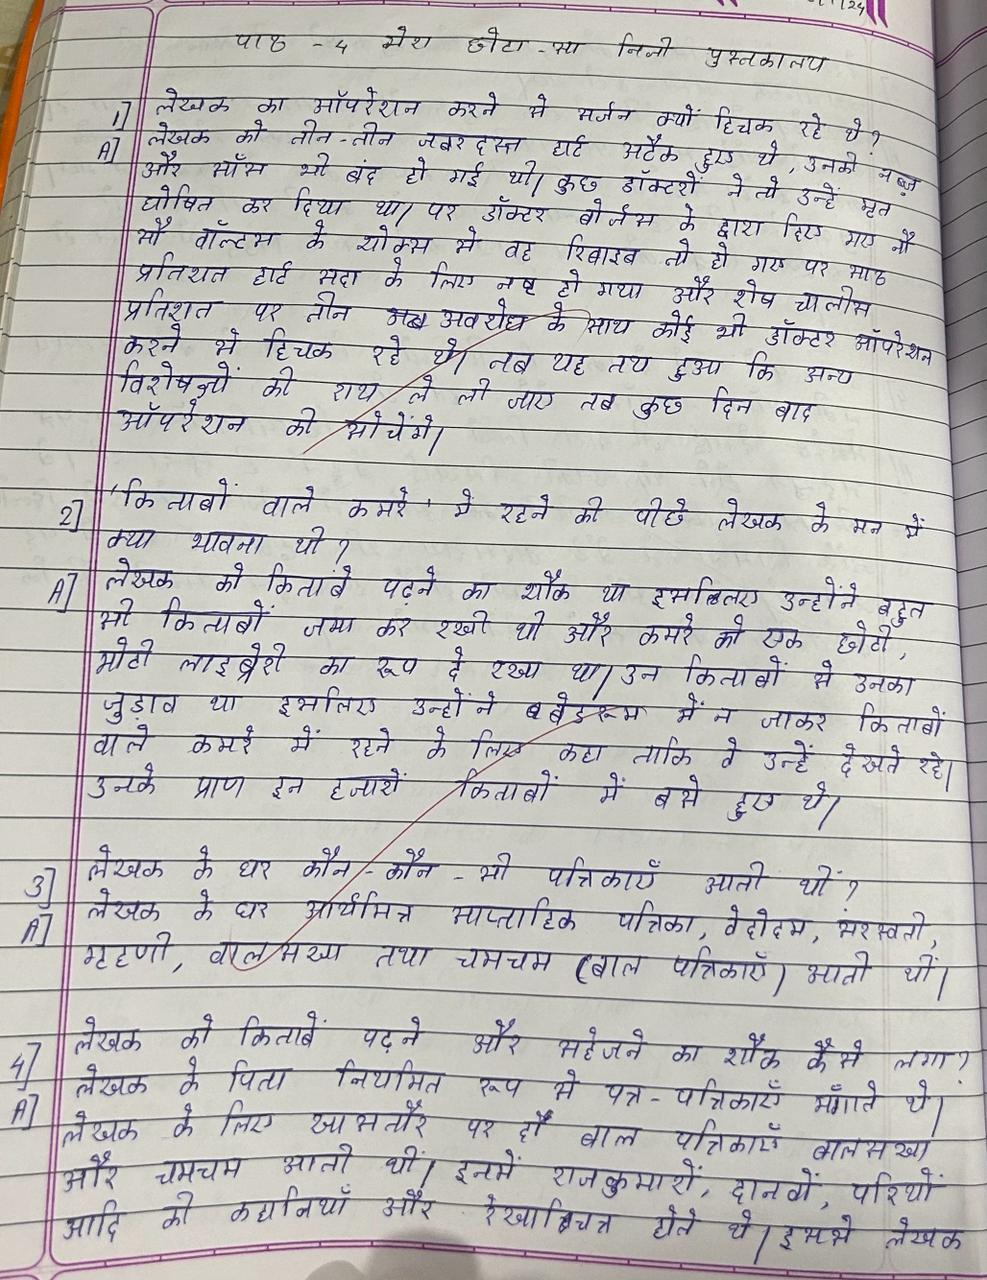 /1/24
पाठ - 4 मेरा छोटा-सा निजी पुस्तकालय
1] लेखक का ऑपरेशन करने से सर्जन क्यों हिचक रहे थे?
A] लेखक को तीन-तीन जबरदस्त हार्ट अटैक हुए थे, उनकी नब्ज़
और साँस भी बंद हो गई थी। कुछ डॉक्टरों ने तो उन्हें मृत
घोषित कर दिया था। पर डॉक्टर बोर्जेस के द्वारा दिए गए नौ
सौ वॉल्टस के शोक्स से वह रिवाइव तो हो गए पर साठ
प्रतिशत हार्ट सदा के लिए नष्ट हो गया और शेष चालीस
प्रतिशत पर तीन अवरोध के साथ कोई भी डॉक्टर ऑपरेशन
करने से हिचक रहे थे। तब यह तय हुआ कि अन्य
विशेषज्ञों की राय ले ली जाए तब कुछ दिन बाद
ऑपरेशन की सोचेंगे।
2] 'किताबों वाले कमरे' में रहने की पीछे लेखक के मन में
क्या भावना थी?
A] लेखक को किताबें पढ़ने का शौक था इसलिए उन्होंने बहुत
सी किताबों जमा कर रखी थी और कमरे को एक छोटी,
मोटी लाइब्रेरी का रूप दे रखा था। उन किताबों से उनका
जुड़ाव था इसलिए उन्होंने बेडरूम में न जाकर किताबों
वाले कमरे में रहने के लिए कहा ताकि वे उन्हें देखते रहे।
उनके प्राण इन हजारों किताबों में बसे हुए थे।
3] लेखक के घर कौन-कौन-सी पत्रिकाएँ आती थीं?
A] लेखक के घर आर्यमित्र साप्ताहिक पत्रिका, वेदोदम, सरस्वती,
गृहणी, बालसखा तथा चमचम (बाल पत्रिकाएँ) आती थीं।
4] लेखक को किताबें पढ़ने और सहेजने का शौक कैसे लगा?
A] लेखक के पिता नियमित रूप से पत्र-पत्रिकाएँ मँगाते थे।
लेखक के लिए खासतौर पर दो बाल पत्रिकाएँ बालसखा
और चमचम आती थीं। इनमें राजकुमारों, दानवों, परियों
आदि की कहानियाँ और रेखाचित्र होते थे। इससे लेखक